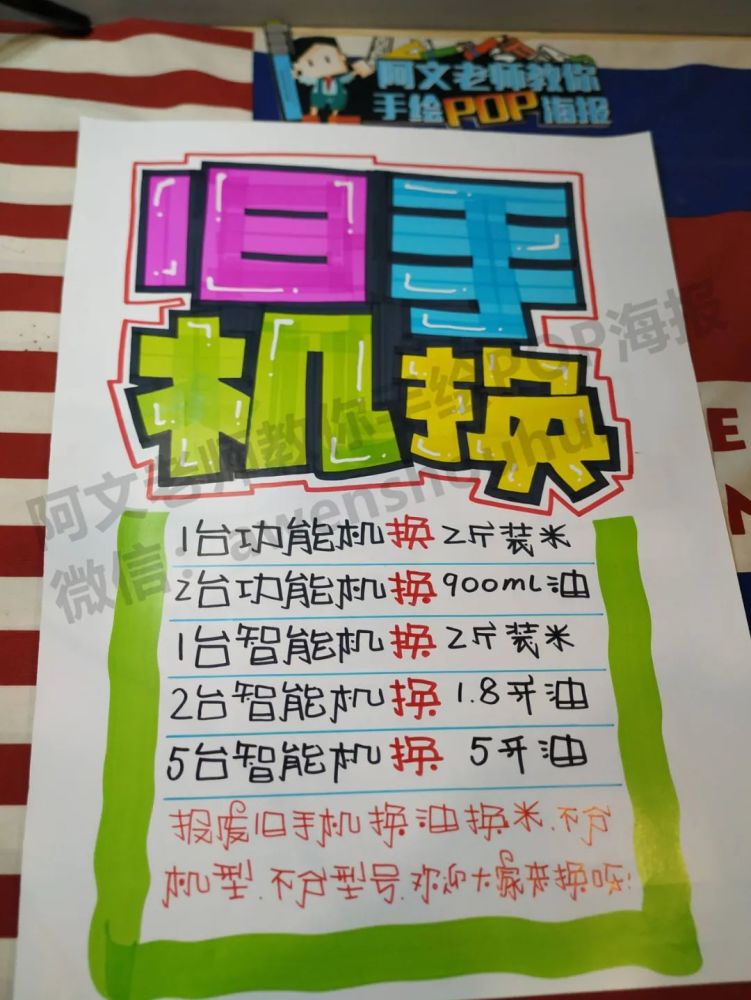 阿文老师教你
手绘POP海报
旧手
机换
1台功能机换2斤装米
2台功能机换900mL油
1台智能机换2斤装米
2台智能机换1.8升油
5台智能机换5升油
报废旧手机换油换米.不分
机型.不分型号.欢迎大家来换呀!
阿文老师教你手绘POP海报
微信:awenshouhui